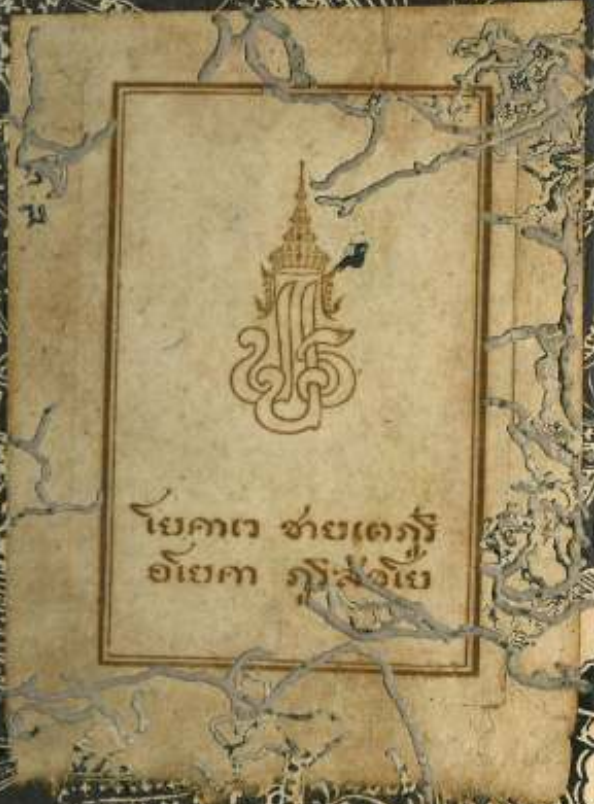 โยคาเว ชายเตภูริ
อโยคา ภูริสังขโย